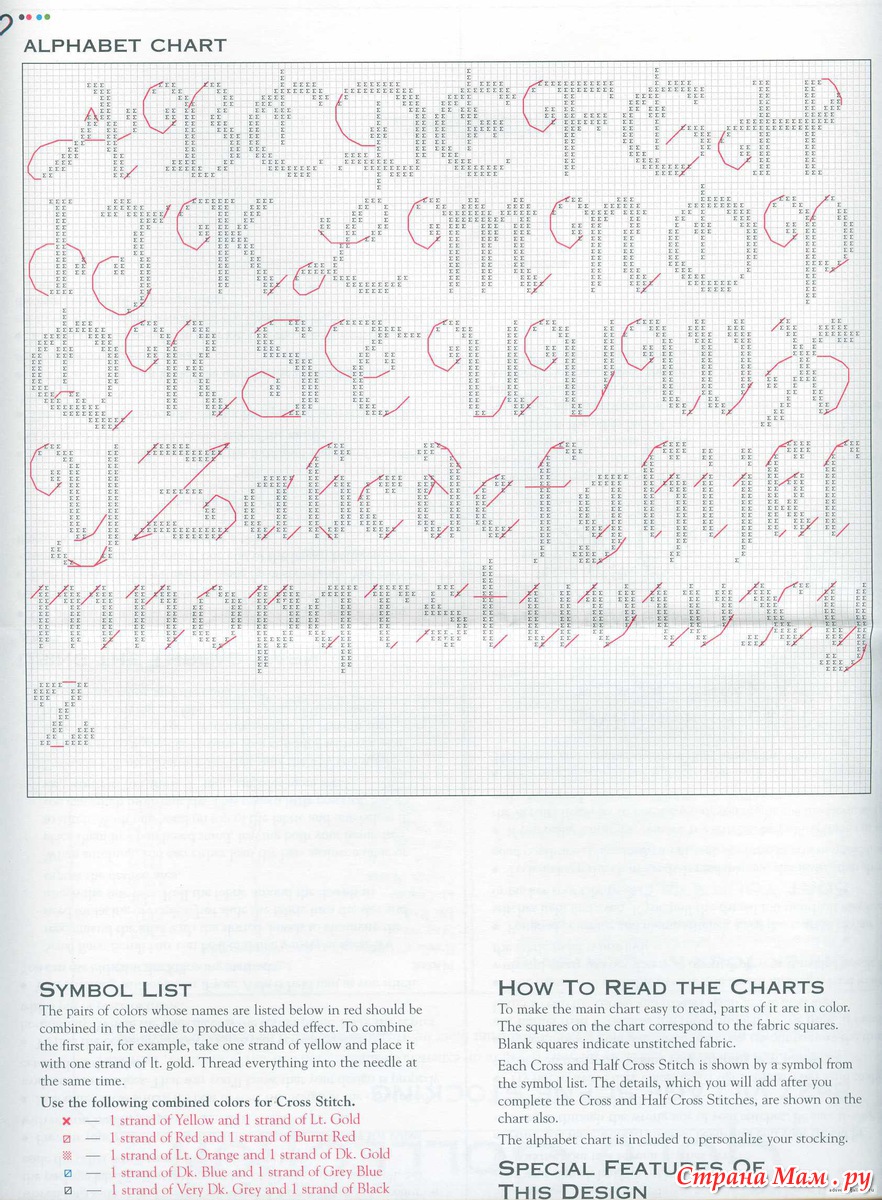 ALPHABET CHART
A B C D E F G H
I J K L M N O P
Q R S T U V W X
Y Z a b c d e f g h i j k l
m n o p q r s t u v w x y
z
SYMBOL LIST
The pairs of colors whose names are listed below in red should be
combined in the needle to produce a shaded effect. To combine
the first pair, for example, take one strand of yellow and place it
with one strand of lt. gold. Thread everything into the needle at
the same time.
Use the following combined colors for Cross Stitch.
— 1 strand of Yellow and 1 strand of Lt. Gold
— 1 strand of Red and 1 strand of Burnt Red
— 1 strand of Lt. Orange and 1 strand of Dk. Gold
— 1 strand of Dk. Blue and 1 strand of Grey Blue
— 1 strand of Very Dk. Grey and 1 strand of Black
HOW TO READ THE CHARTS
To make the main chart easy to read, parts of it are in color.
The squares on the chart correspond to the fabric squares.
Blank squares indicate unstitched fabric.
Each Cross and Half Cross Stitch is shown by a symbol from
the symbol list. The details, which you will add after you
complete the Cross and Half Cross Stitches, are shown on the
chart also.
The alphabet chart is included to personalize your stocking.
SPECIAL FEATURES OF
THIS DESIGN
Страна Мам.ру